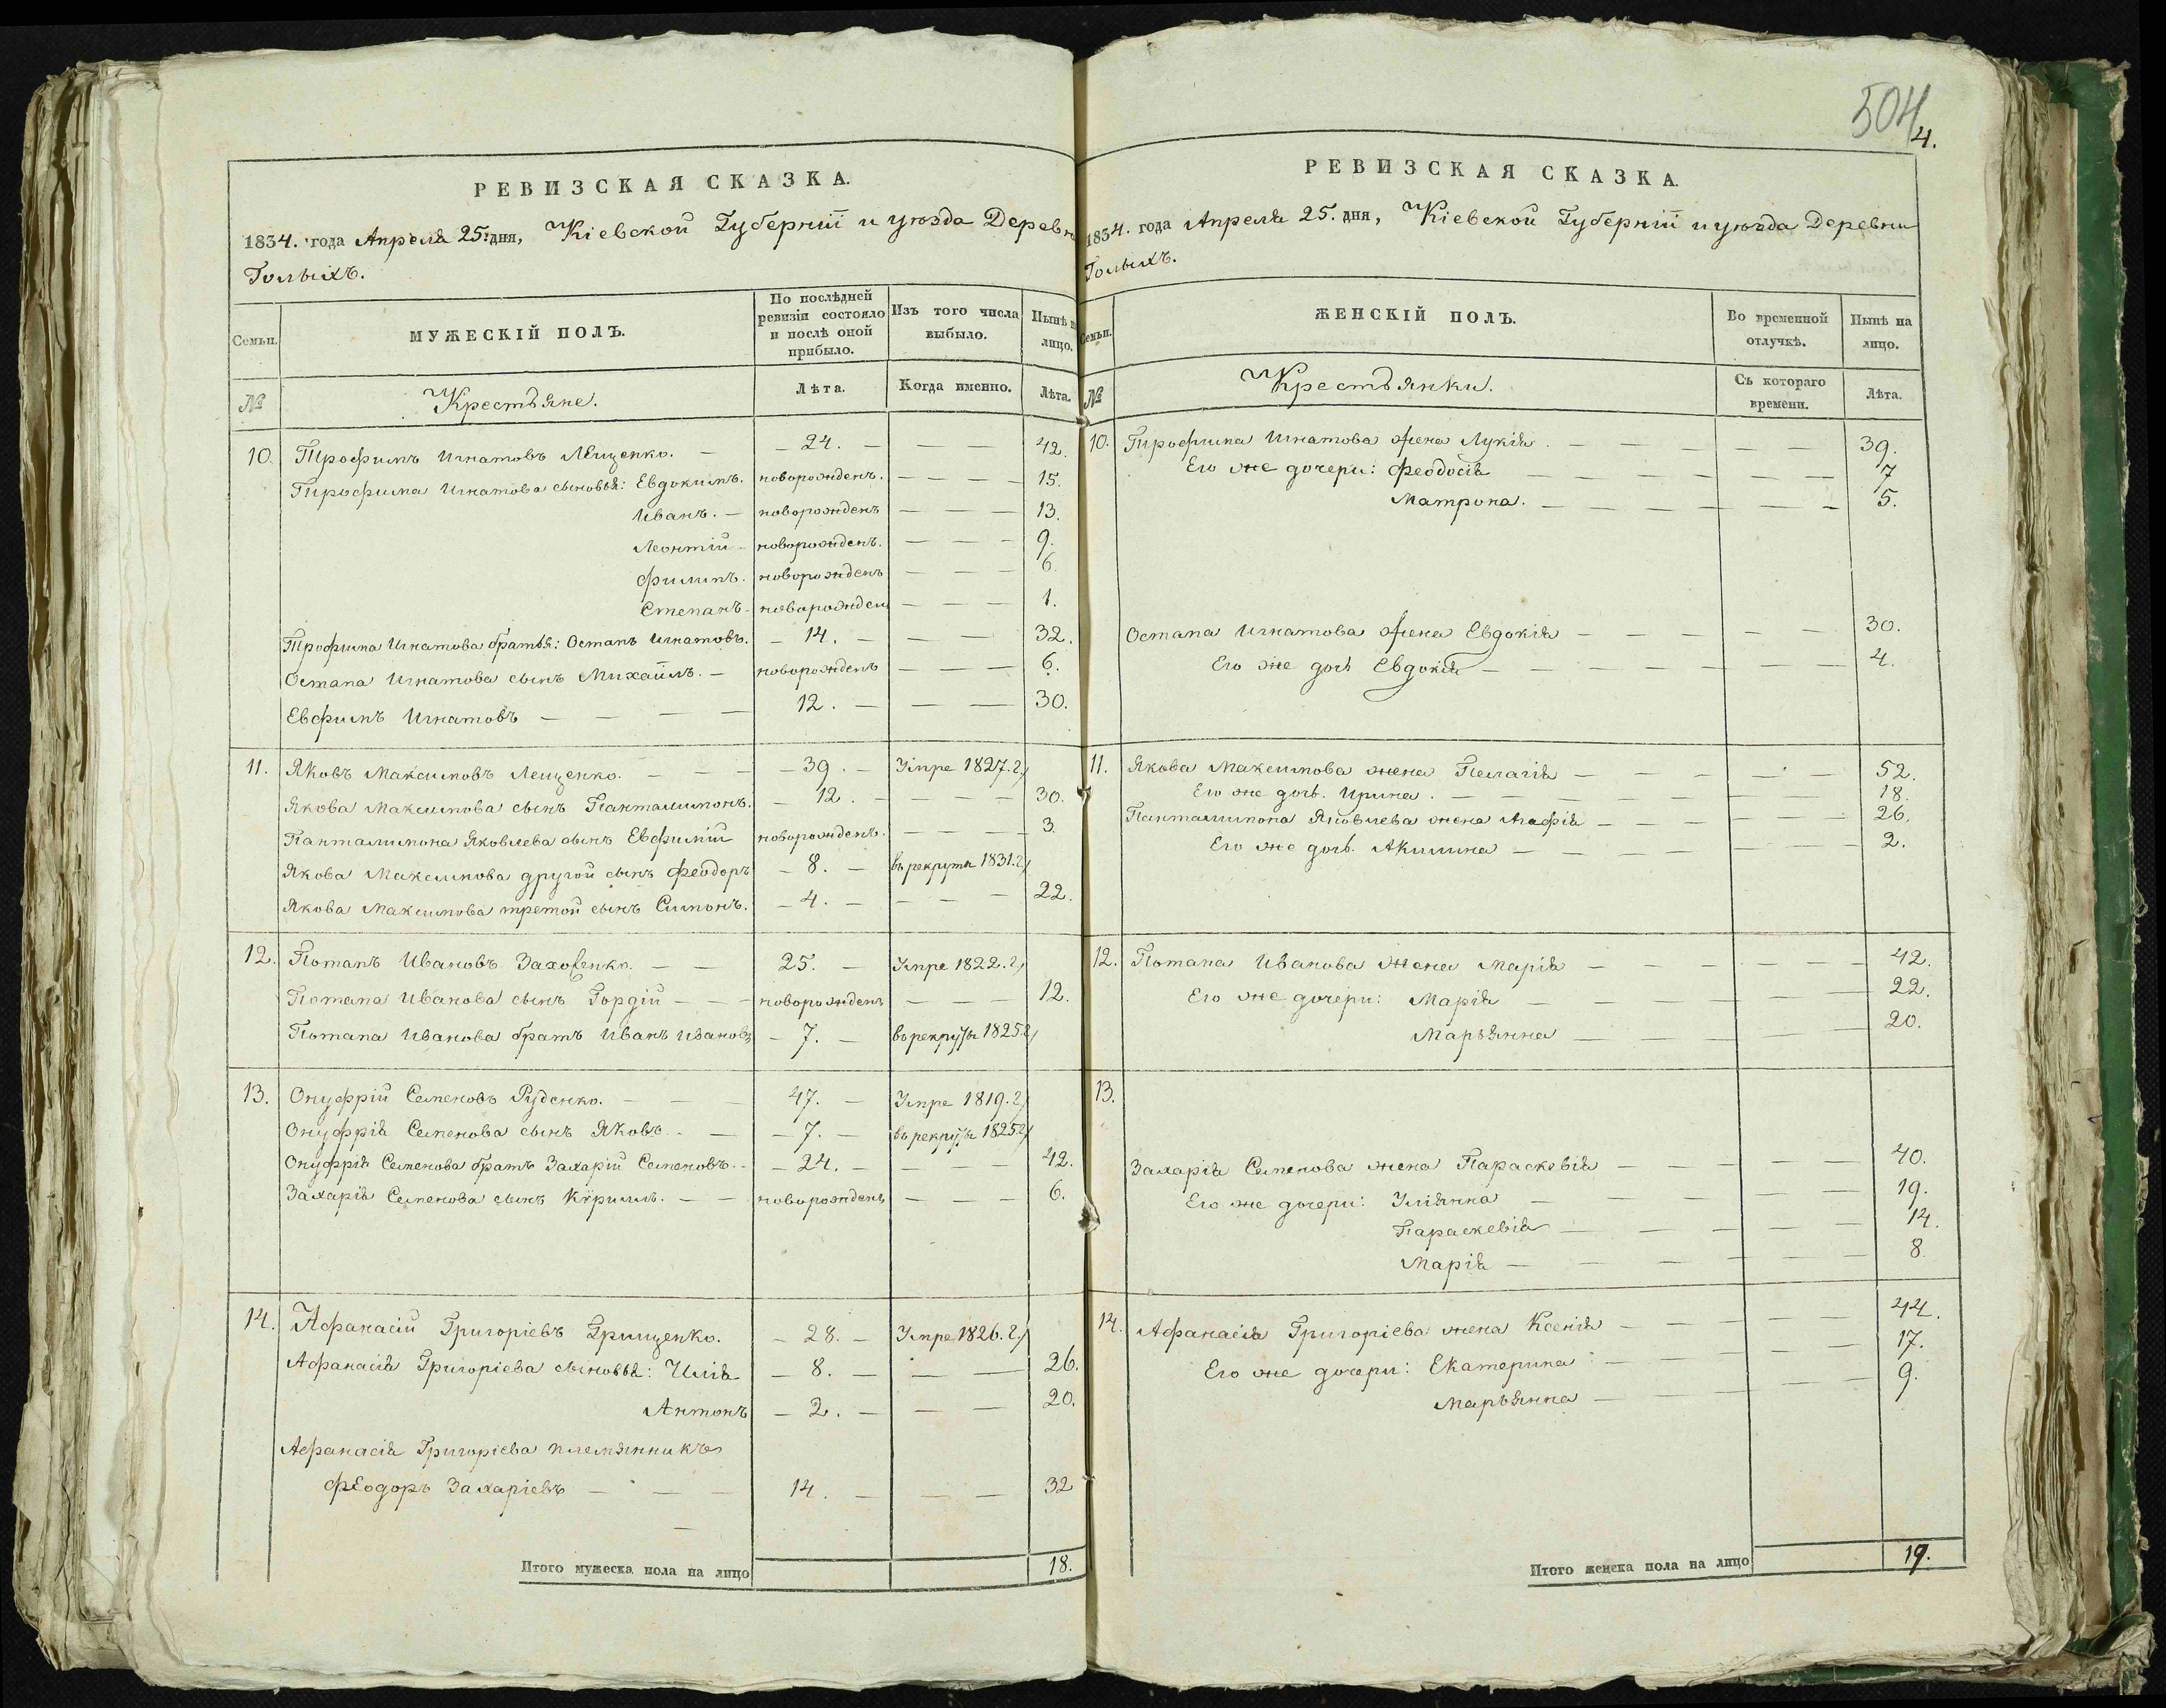 РЕВИЗСКАЯ СКАЗКА.
1834. года Апреля 25. дня, Кіевской Губерніи и уѣзда Деревн
Голыхъ.
Семьи. МУЖЕСКІЙ ПОЛЪ. По послѣдней ревизіи состояло и послѣ оной прибыло. Изъ того числа выбыло. Нынѣ на лицо.
№ Крестьяне. Лѣта. Когда именно. Лѣта.
10. Трофимъ Игнатовъ Лещенко. — 24. — — — 42.
Трофима Игнатова сыновья: Евдокимъ. новорожденъ. — — — 15.
Иванъ. — новорожденъ — — — 13.
Леонтій — новорожденъ. — — — 9.
Филипъ. новорожденъ — — — 6.
Степанъ. новорожден — — — 1.
Трофима Игнатова братья: Остапъ Игнатовъ. — 14. — — — 32.
Остапа Игнатова сынъ Михаилъ. — новорожденъ — — — 6.
Евфимъ Игнатовъ — — — — 12. — — — 30.
11. Яковъ Максимовъ Лещенко. — — — 39. — Умре 1827. г.
Якова Максимова сынъ Панталимонъ. — 12. — — — 30.
Панталимона Яковлева сынъ Евфимій новорожденъ. — — — — 3.
Якова Максимова другой сынъ Феодоръ — 8. — въ рекруты 1831. г.
Якова Максимова третой сынъ Симонъ. — 4. — — — 22.
12. Потапъ Ивановъ Заховенко. — — 25. — Умре 1822. г.
Потапа Иванова сынъ Гордій — — — новорожденъ — — — 12.
Потапа Иванова братъ Иванъ Ивановъ — 7. — въ рекруты 1825 г.
13. Онуфрій Семеновъ Руденко. — — — 47. — Умре 1819. г.
Онуфрія Семенова сынъ Яковъ. — — 7. — въ рекруты 1825 г.
Онуфрія Семенова братъ Захарій Семеновъ. — — 24. — — — — 42.
Захарія Семенова сынъ Кѵрилъ. — — новорожденъ — — — 6.
14. Афанасій Григоріевъ Грищенко. — 28. — Умре 1826. г.
Афанасія Григоріева сыновья: Илія — 8. — — — 26.
Антонъ — 2. — — — 20.
Афанасія Григоріева племянникъ
Феодоръ Захаріевъ — — — 14. — — — 32
Итого мужеска пола на лицо 18.
504
4.
РЕВИЗСКАЯ СКАЗКА.
1834. года Апреля 25. дня, Кіевской Губерніи и уѣзда Деревни
Голыхъ.
Семьи. ЖЕНСКІЙ ПОЛЪ. Во временной отлучкѣ. Нынѣ на лицо.
№ Крестьянки. Съ котораго времени. Лѣта.
10. Трофима Игнатова жена Лукія. — — — — 39.
Его же дочери: Феодосія — — — — — 7
Матрона. — — — — — — 5.
Остапа Игнатова жена Евдокія — — — — — 30.
Его же дочь Евдокія — — — — — — 4.
11. Якова Максимова жена Пелагія — — — — — 52.
Его же дочь. Ирина. — — — — — — 18.
Панталимона Яковлева жена Агафія — — — — — 26.
Его же дочь. Акилина — — — — — 2.
12. Потапа Иванова жена Марія — — — — — 42.
Его же дочери: Марія — — — — — 22.
Марьянна — — — — — 20.
13.
Захарія Семенова жена Параскевія — — — — — 40.
Его же дочери: Уліянна — — — — — 19.
Параскевія — — — — — 14.
Марія — — — — — — 8.
14. Афанасія Григоріева жена Ксенія — — — — — 44.
Его же дочери: Екатерина: — — — — — 17.
Марьянна — — — — — 9.
Итого женска пола на лицо 19.